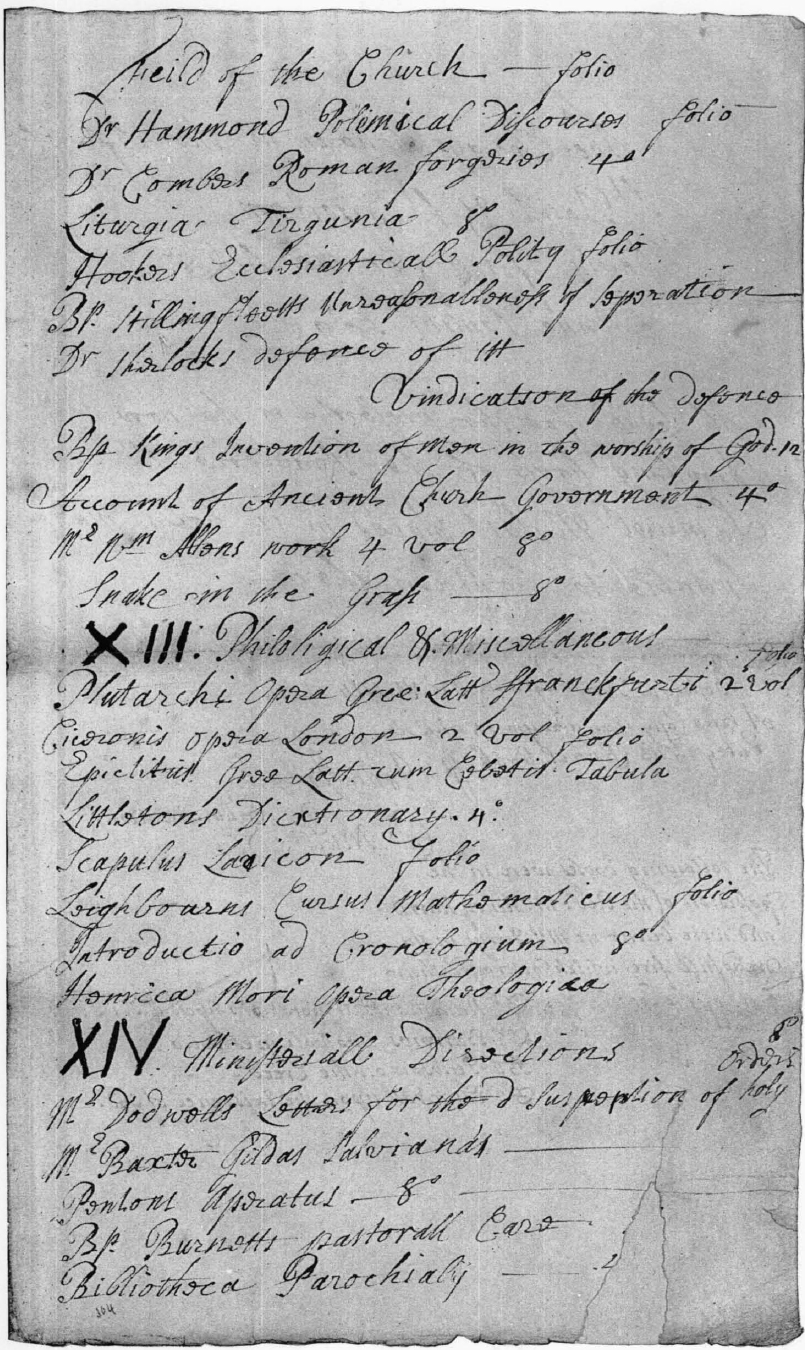 Feild of the Church — folio
Dr Hammond Polimical Discourses folio
Dr Combers Roman forgeries 4o
Liturgia Tirgunia 8o
Hookers Ecclesiasticall Polity folio
Bp. Stillingfleetts Unreasonalleness of Seperation
Dr Sherlocks defence of itt
Vindication of the defence
Bp Kings Invention of Men in the worship of God. 12
Account of Ancient Church Government 4o
Mr Wm Allens work 4 vol 8o
Snake in the Grass — 8o
XIII. Philoligical & Miscellaneous
folio
Plutarchi Opera Gree: Latt ffranckfurti 2 vol
Ciceronis opera London 2 vol folio
Epiclitus Gree Latt. cum Cebetis Tabula
Littletons Dicxtionary. 4o
Scapulus Laxicon folio
Leighbourns Cursus Mathematicus folio
Introductio ad Cronologium 8o
Henrica Mori Opera Theologiae
XIV. Ministeriall Directions 8o
Orders
Mr Dodwells Letters for the d Suspention of holy
Mr Baxter Gildas Salviands —
Pentons Aperatus — 8o
Bp. Burnetts pastorall Care
Bibliotheca Parochialy —
304